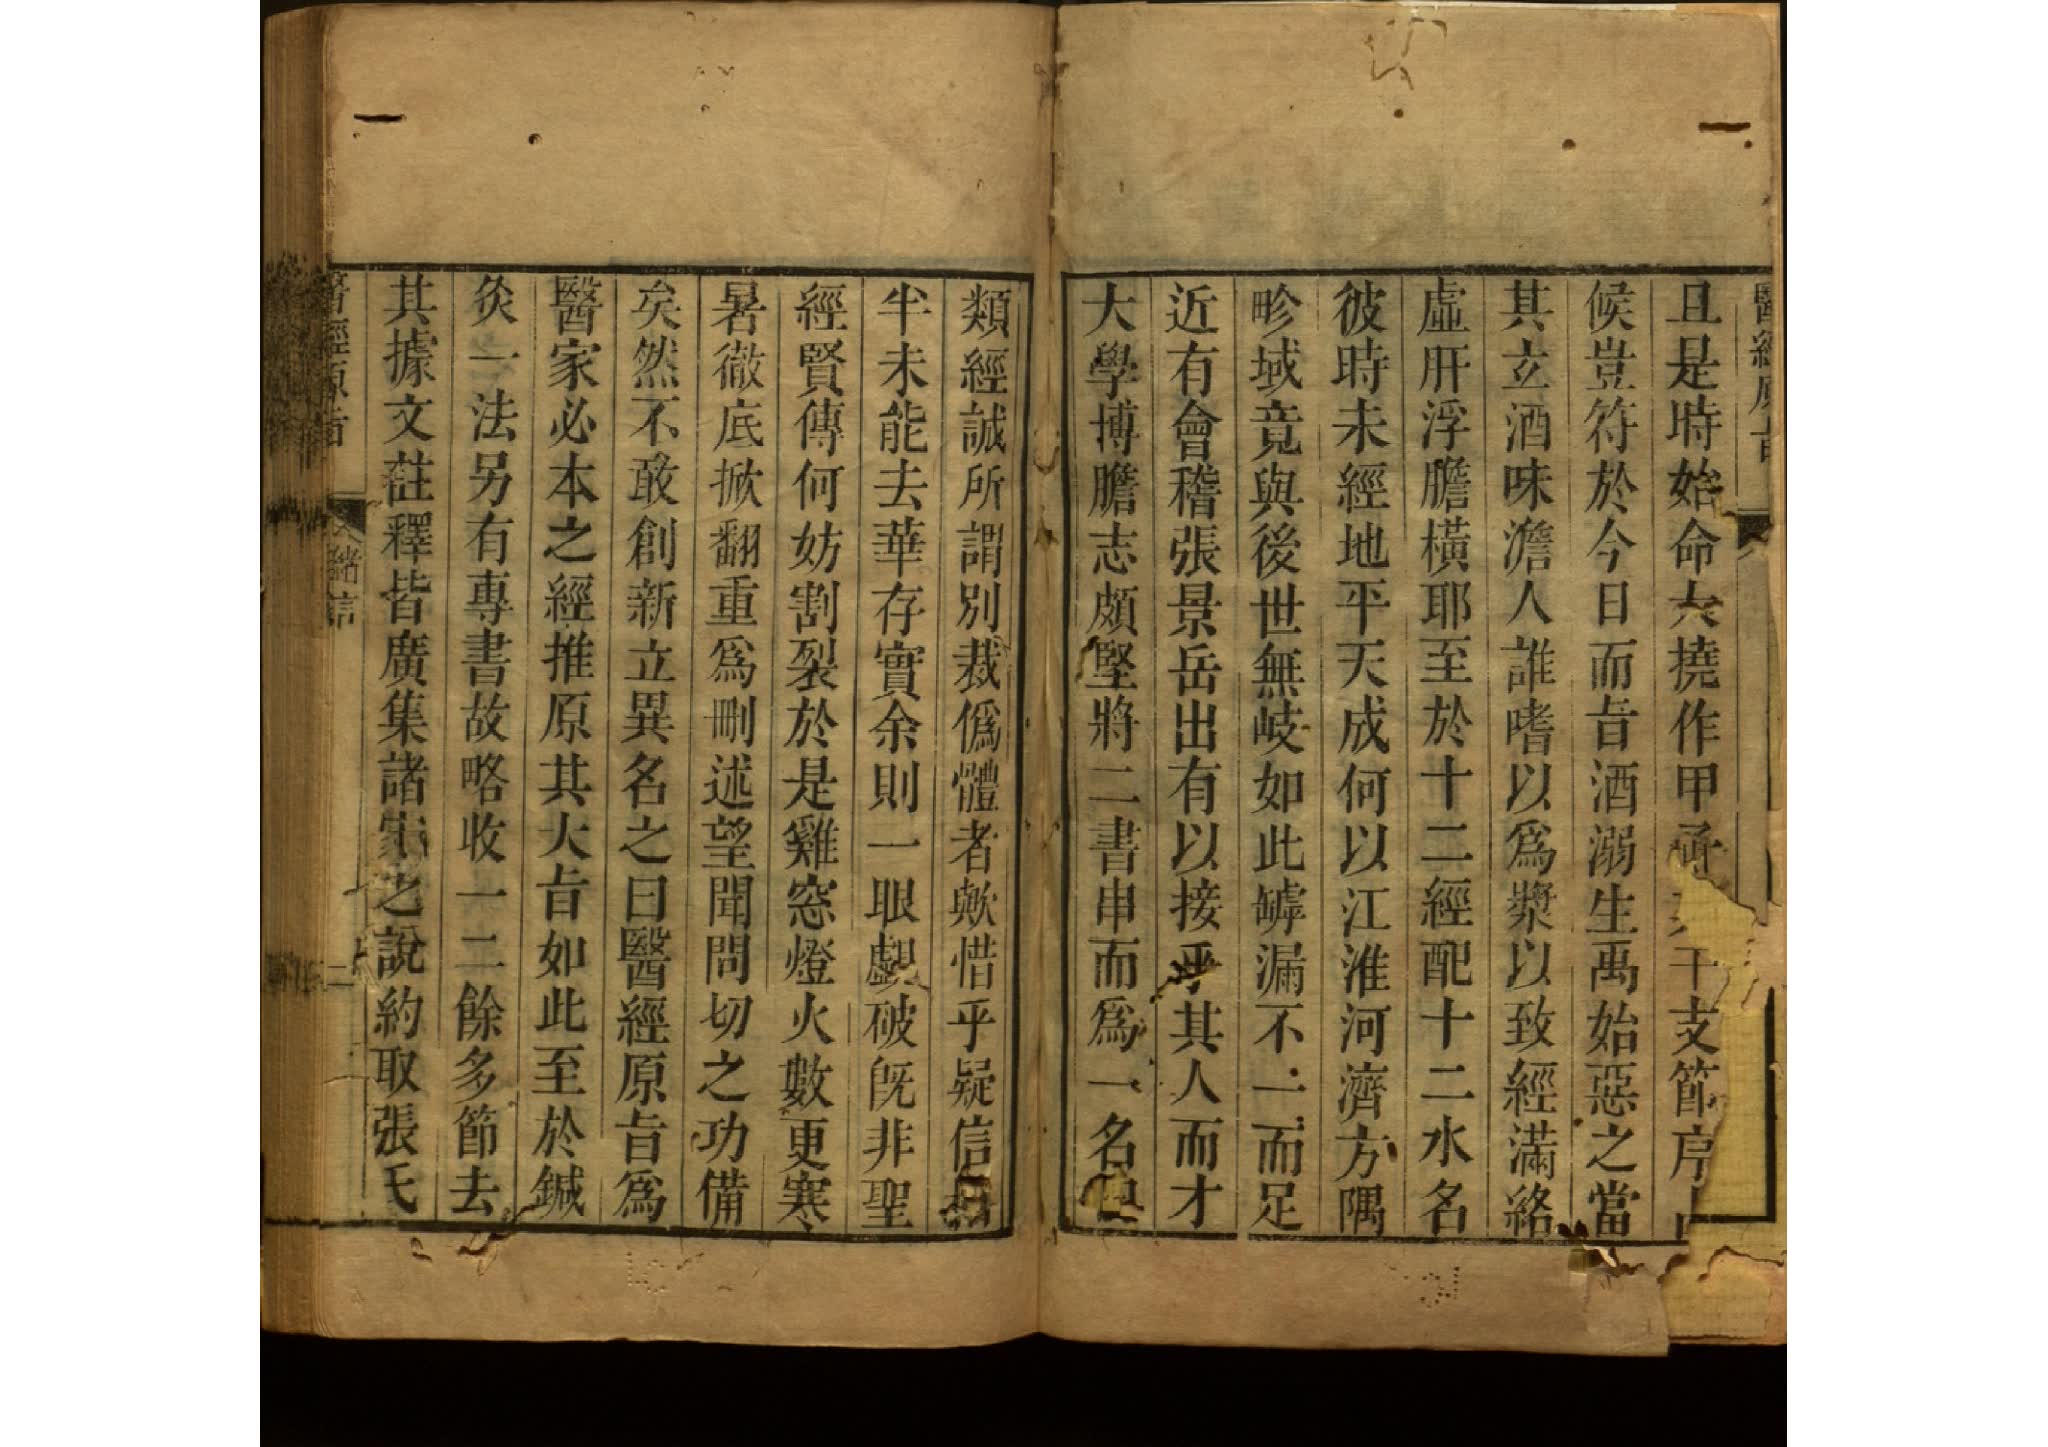 醫經原旨
且是時始命大撓作甲子干支節序
候豈符於今日而旨酒溺生禹始惡之當
其立酒味澹人誰嗜以爲漿以致經滿絡
虛肝浮膽橫耶至於十二經配十二水名
彼時未經地平天成何以江淮河濟方隅
畛域竟與後世無岐如此罅漏不一而足
近有會稽張景岳出有以接乎其人而才
大學博膽志頗堅將二書串而爲一名曰
類經誠所謂別裁僞體者歟惜乎疑信相
半未能去華存實余則一眼覷破既非聖
經賢傳何妨割裂於是雞窓燈火數更寒
暑徹底掀翻重爲刪述望聞問切之功備
矣然不敢創新立異名之曰醫經原旨爲
醫家必本之經推原其大旨如此至於鍼
灸一法另有專書故略收一二餘多節去
其據文註釋皆廣集諸家之說約取張氏
醫經原旨
緒言
二